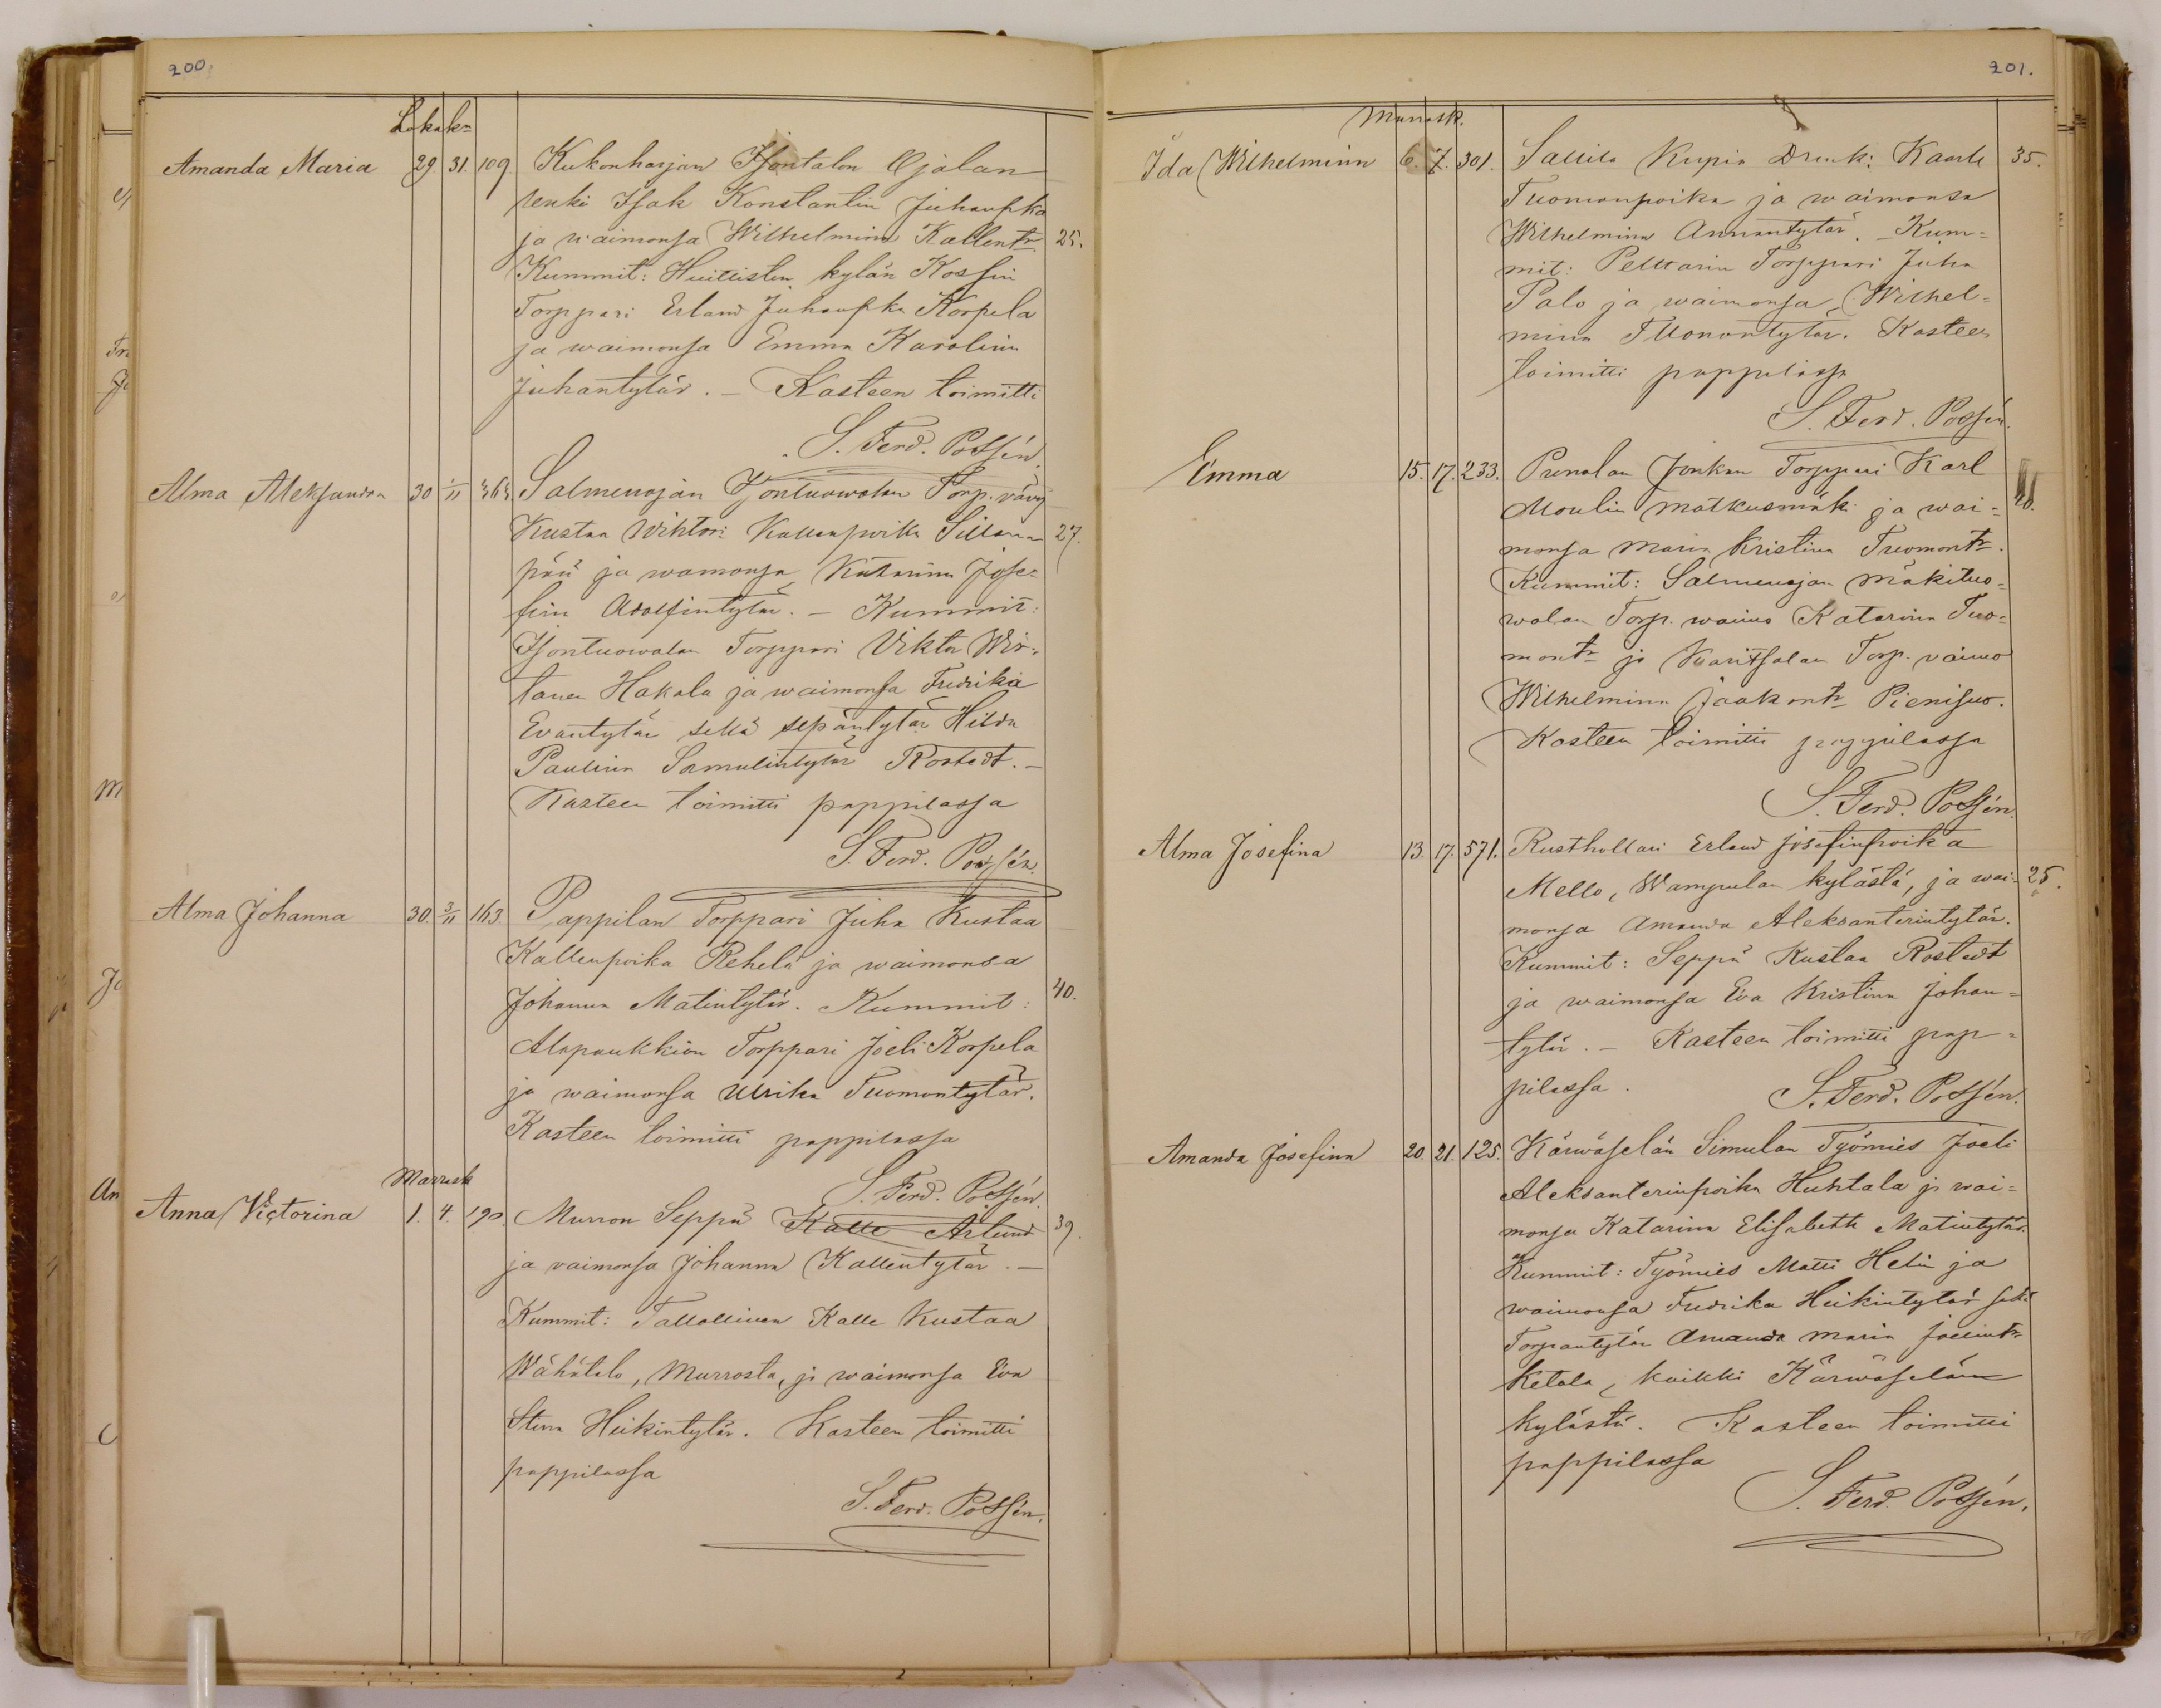 200.
Lokak.
Amanda Maria 29. 31. 109. Kukonharjan Isontalon Ojalan
renki Isak Konstantin Juhanpka
ja waimonsa Wilhelmina Kallentr. 25.
Kummit: Huittisten kylän Kossin
Torppari Erland Juhanpka Korpela
ja waimonsa Emma Karolina
Juhantytär. – Kasteen toimitti
S. Ferd. Possén.
Alma Aleksandra 30 1/11 Salmenojan Isontuowolan Torp. vävy
Kustaa Wihtori Kallenpoika Sillan- 27.
pää ja wamonsa Katarina Jose-
fina Adolfintytär. – Kummit:
Isontuowolan Torppari Viktor Wir-
tanen Hakala ja waimonsa Fredrika
Evantytär sekä sepäntytär Hilda
Paulina Samulintytär Rostedt. –
Kasteen toimitti pappilassa
S. Ferd. Possén.
Alma Johanna 30. 3/11 163. Pappilan Torppari Juha Kustaa
Kallenpoika Rehelä ja waimonsa
Johanna Matintytär. Kummit: 40.
Alapaukkion Torppari Joeli Korpela
ja waimonsa Ulrika Tuomontytär.
Kasteen toimitti pappilassa
S. Ferd. Possén.
Marrask
Anna Victorina 1. 4. 190. Murron Seppä Kalle Arlund 39.
ja vaimonsa Johanna Kallentytär. –
Kummit: Talollinen Kalle Kustaa
Wähätalo, Murrosta, ja waimonsa Eva
Stina Heikintytär. Kasteen toimitti
pappilassa
S. Ferd. Possén.
201.
Marrask.
Ida Wilhelmina 6. 7. 301. Sallila Kupia Kaarle 35.
Tuomonpoika ja waimonsa
Wilhelmina Annantytär. – Kum-
mit: Pelttarin Torppari Juha
Palo ja waimonsa Wilhel-
mina Tuomontytär. Kasteen
toimitti pappilassa
S. Ferd. Possén.
Emma 15. 17. 233. Punolan Junkan Torppari Karl
Moulin Matkusmäki ja wai- 40.
monsa Maria Kristina Tuomontr.
Kummit: Salmenojan Mäkituo-
wolan Torp. waimo Katarina Tuo-
montr ja Kuaritsalan Torp. vaimo
Wilhelmina Jaakontr Pienisuo.
Kasteen toimitti pappilassa
S. Ferd. Possén.
Alma Josefina 13. 17. 571. Rusthollari Erland Josefinpoika
Mello, Wampulan kylästä, ja wai- 25.
monsa Amanda Aleksanterintytär.
Kummit: Seppä Kustaa Rostedt
ja waimonsa Eva Kristina Johan-
tytär. – Kasteen toimitti pap-
pilassa.
S. Ferd. Possén.
Amanda Josefina 20. 21. 125. Körwäselän Simulan Työmies Joeli
Aleksanterinpoika Huhtala ja wai-
monsa Katarina Elisabetth Matintytär.
Kummit: Työmies Matti Helin ja
waimonsa Fredrika Heikintytär sekä
Torparitytär Amanda Maria Joelintr
Ketola, kaikki Körwäselän
kylästä. Kasteen toimitti
pappilassa
S. Ferd. Possén.